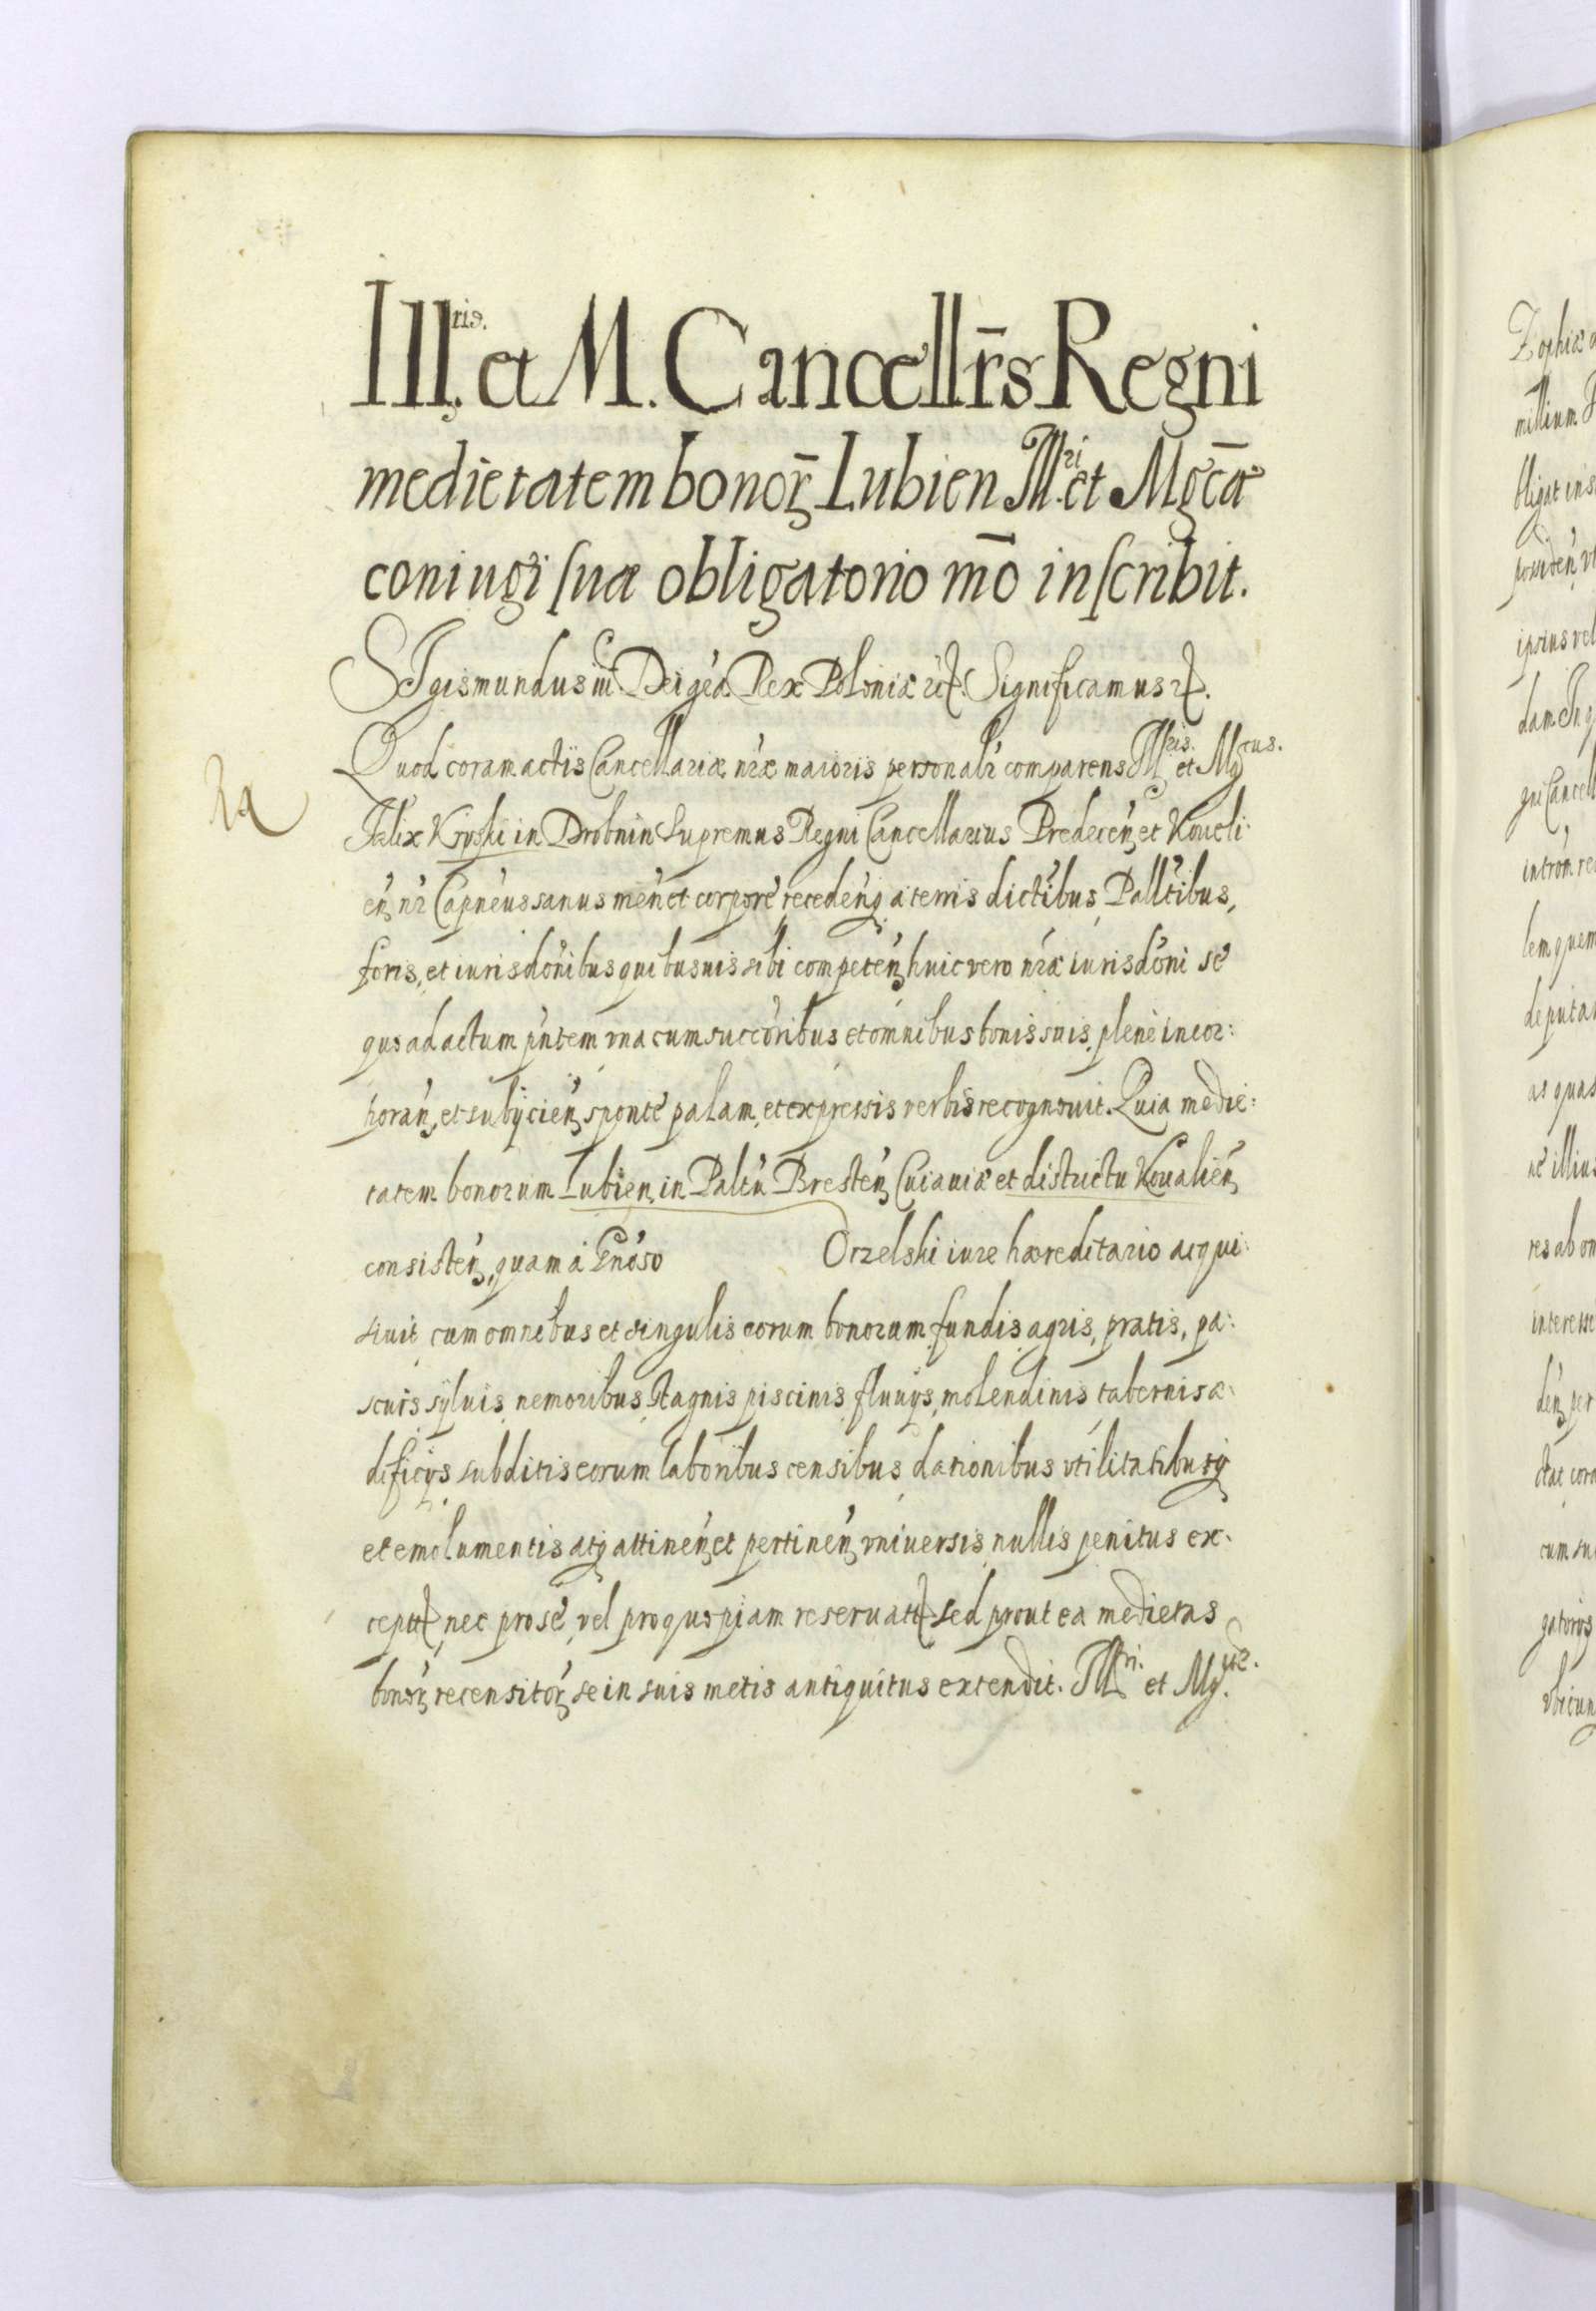 Ill.ris et M. Cancellr̄s Regni
medietatem bonoꝝ Lubien Ill.ri et Mgcæ
coniugi ſuæ obligatorio m̄o inſcribit.
SIgismundus iii. Dei gra. Rex Poloniæ etc. Significamus etc.
Quod coram actis Cancellariæ nr̄æ maioris personalr̄ comparens Illris. et Mgcus.
Felix Kryski in Drobnin Supremus Regni Cancellarius Predecen̄ et Koueli:
en̄ nr̄ Capneus sanus men̄ et corpore recedenq a terris dictibus, Palltibus,
foris, et iurisdonibus quibusuis sibi competen̄ huic vero nr̄æ iurisdoni se
quo ad actum pn̄tem vna cum succoribus et omnibus bonis suis plene incor:
poran̄, et subijcien̄ sponte palam, et expressis verbis recognouit. Quia medie:
tatem bonorum Lubien, in Paltu Bresten̄ Cuiauiæ et districtu Koualien̄
consisten̄, quam a Gnoso Orzelski iure hæreditario acqui:
siuit cum omnibus et singulis eorum bonorum fundis agris, pratis, pa:
scuis syluis, nemoribus, stagnis piscinis, fluuijs, molendinis tabernis æ:
dificijs subditis eorum laboribus censibus dationibus vtilitatibusq
et emolumentis atq attinen̄ et pertinen̄ vniuersis nullis penitus ex:
ceptis, nec pro se, vel pro quopiam reseruatis sed prout ea medietas
bonoꝝ recensitoꝝ se in suis metis antiquitus extendit. Illri. et Mg.
Zophiæ
millium
bligat in
possiden̄ vt
ipsius vel
dam
gni Cancell
lem quem
deputa
as quas
illius
res ab om
interesse
den̄ per
cum su
gatorijs
vbicun